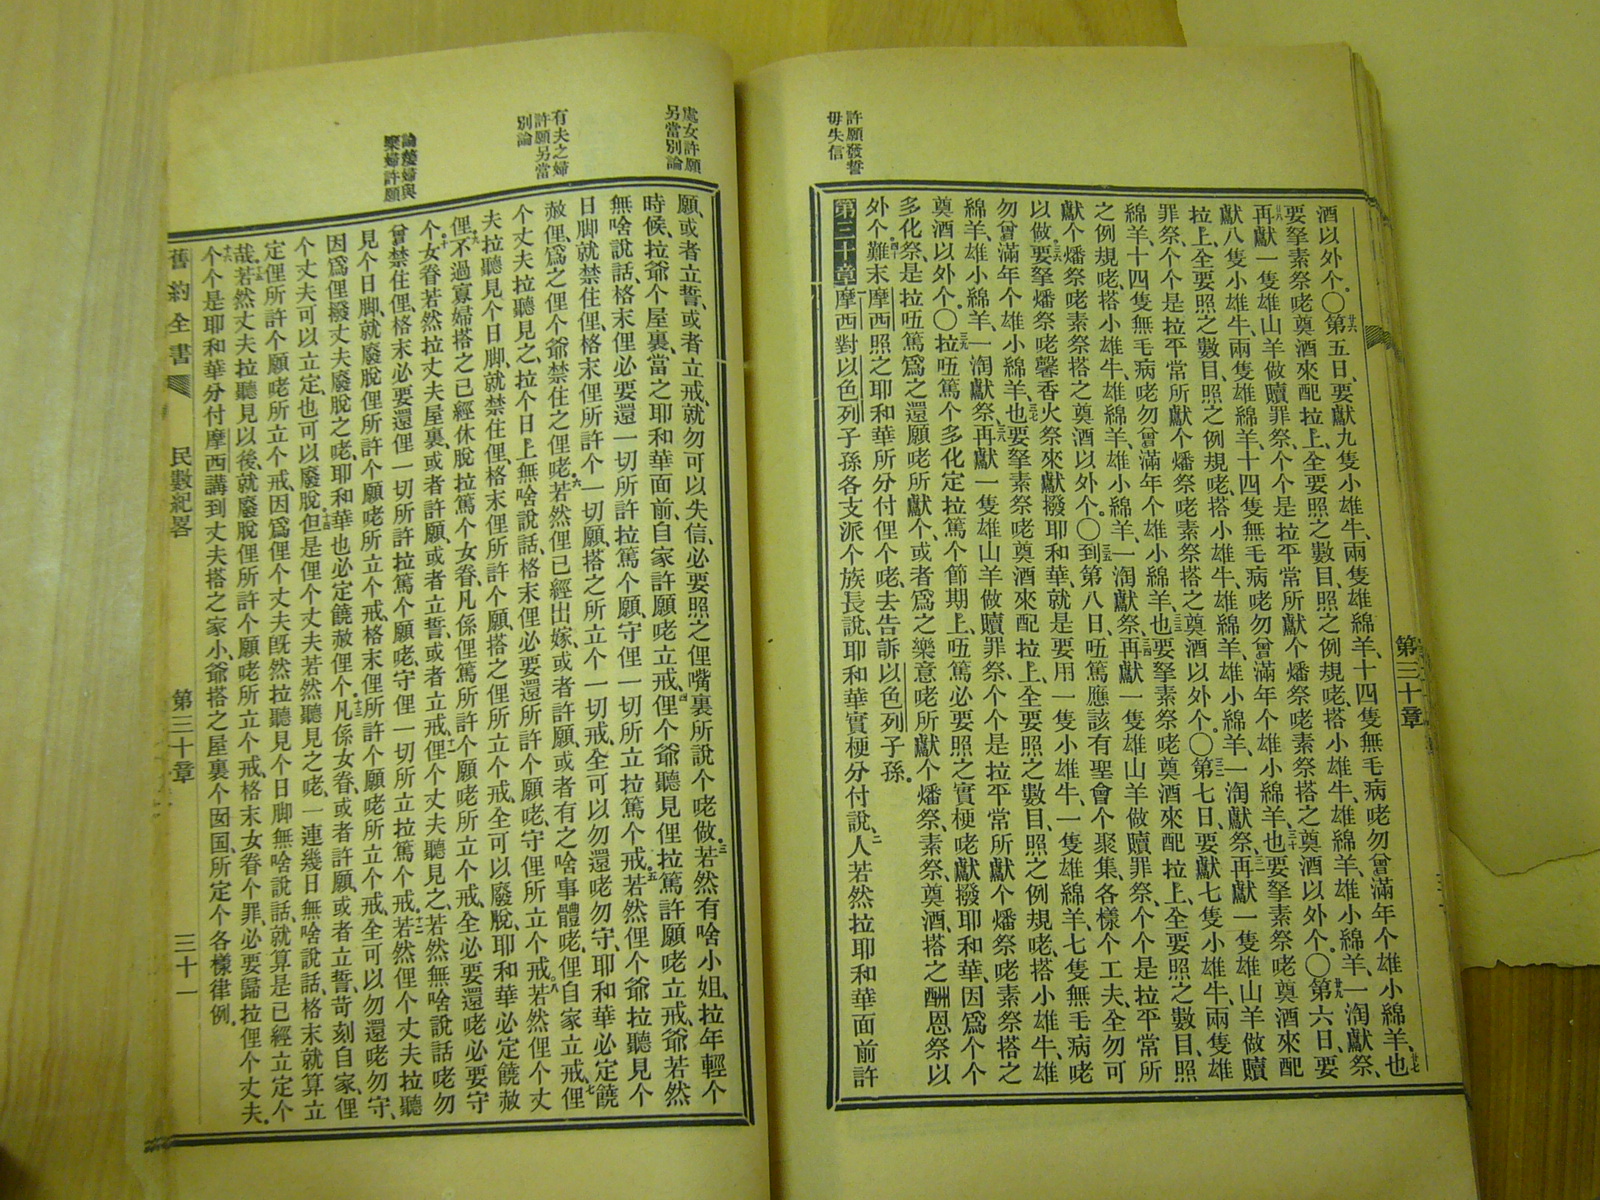 許願發誓
毋失信
酒以外个。〇第五日、要獻九隻小雄牛、兩隻雄綿羊、十四隻無毛病咾勿曾滿年个雄小綿羊、也
要拏素祭咾奠酒來配拉上、全要照之數目、照之例規咾、搭小雄牛、雄綿羊、雄小綿羊、一淘獻祭、
再獻一隻雄山羊做贖罪祭、个个是拉平常所獻个燔祭咾素祭搭之奠酒以外个。〇第六日、要
獻八隻小雄牛、兩隻雄綿羊、十四隻無毛病咾勿曾滿年个雄小綿羊、也要拏素祭咾奠酒來配
拉上、全要照之數目、照之例規咾、搭小雄牛、雄綿羊、雄小綿羊、一淘獻祭、再獻一隻雄山羊做贖
罪祭、个个是拉平常所獻个燔祭咾素祭搭之奠酒以外个。〇第七日、要獻七隻小雄牛、兩隻雄
綿羊、十四隻無毛病咾勿曾滿年个雄小綿羊、也要拏素祭咾奠酒來配拉上、全要照之數目、照
之例規咾、搭小雄牛、雄綿羊、雄小綿羊、一淘獻祭、再獻一隻雄山羊做贖罪祭、个个是拉平常所
獻个燔祭咾素祭搭之奠酒以外个。〇到第八日、㑚篤應該有聖會个聚集、各樣个工夫、全勿可
以做、要拏燔祭咾馨香火祭來獻撥耶和華、就是要用一隻小雄牛、一隻雄綿羊、七隻無毛病咾
勿曾滿年个雄小綿羊、也要拏素祭咾奠酒來配拉上、全要照之數目、照之例規咾、搭小雄牛、雄
綿羊、雄小綿羊、一淘獻祭、再獻一隻雄山羊做贖罪祭、个个是拉平常所獻个燔祭咾素祭搭之
奠酒以外个。〇拉㑚篤个多化定拉篤个節期上、㑚篤必要照之實梗咾獻撥耶和華、因爲个个
多化祭、是拉㑚篤爲之還願咾所獻个、或者爲之樂意咾所獻个燔祭、素祭、奠酒、搭之酬恩祭以
外个、難末摩西照之耶和華所分付俚个咾、去告訴以色列子孫。
第三十章摩西對以色列子孫各支派个族長說、耶和華實梗分付說、人若然拉耶和華面前許
第三十章
處女許願
另當別論
有夫之婦
許願另當
別論
論嫠婦與
棄婦許願
願、或者立誓、或者立戒、就勿可以失信、必要照之俚嘴裏所說个咾做、若然有啥小姐、拉年輕个
時候、拉爺个屋裏、當之耶和華面前、自家許願咾立戒、俚个爺聽見俚拉篤許願咾立戒、爺若然
無啥說話、格末俚必要還一切所許拉篤个願、守俚一切所立拉篤个戒、若然俚个爺拉聽見个
日脚、就禁住俚、格末俚所許个一切願、搭之所立个一切戒、全可以勿還咾勿守、耶和華必定饒
赦俚、爲之俚个爺禁住之俚咾、若然俚已經出嫁、或者許願、或者有之啥事體咾、俚自家立戒、俚
个丈夫拉聽見之、拉个日上無啥說話、格末俚必要還所許个願咾、守俚所立个戒、若然俚个丈
夫拉聽見个日脚、就禁住俚、格末俚所許个願、搭之俚所立个戒、全可以廢脫、耶和華必定饒赦
俚、不過寡婦搭之已經休脫拉篤个女眷、凡係俚篤所許个願咾所立个戒、全必要還咾必要守
个、女眷若然拉丈夫屋裏、或者許願、或者立誓、或者立戒、俚个丈夫聽見之、若然無啥說話咾勿
曾禁住俚、格末必要還俚一切所許拉篤个願咾、守俚一切所立拉篤个戒、若然俚个丈夫拉聽
見个日脚、就廢脫俚所許个願咾所立个戒、格末俚所許个願咾所立个戒、全可以勿還咾勿守、
因爲俚撥丈夫廢脫之咾、耶和華也必定饒赦俚个、凡係女眷、或者許願、或者立誓、苛刻自家、俚
个丈夫可以立定、也可以廢脫、但是俚个丈夫若然聽見之咾、一連幾日無啥說話、格末就算立
定俚所許个願咾所立个戒、因爲俚个丈夫旣然拉聽見个日脚無啥說話、就算是已經立定个
哉、若然丈夫拉聽見以後、就廢脫俚所許个願咾所立个戒、格末女眷个罪、必要歸拉俚个丈夫。
个个是耶和華分付摩西講到丈夫搭之家小、爺搭之屋裏个囡囯、所定个各樣律例。
舊約全書 民數紀畧 第三十章 三十一